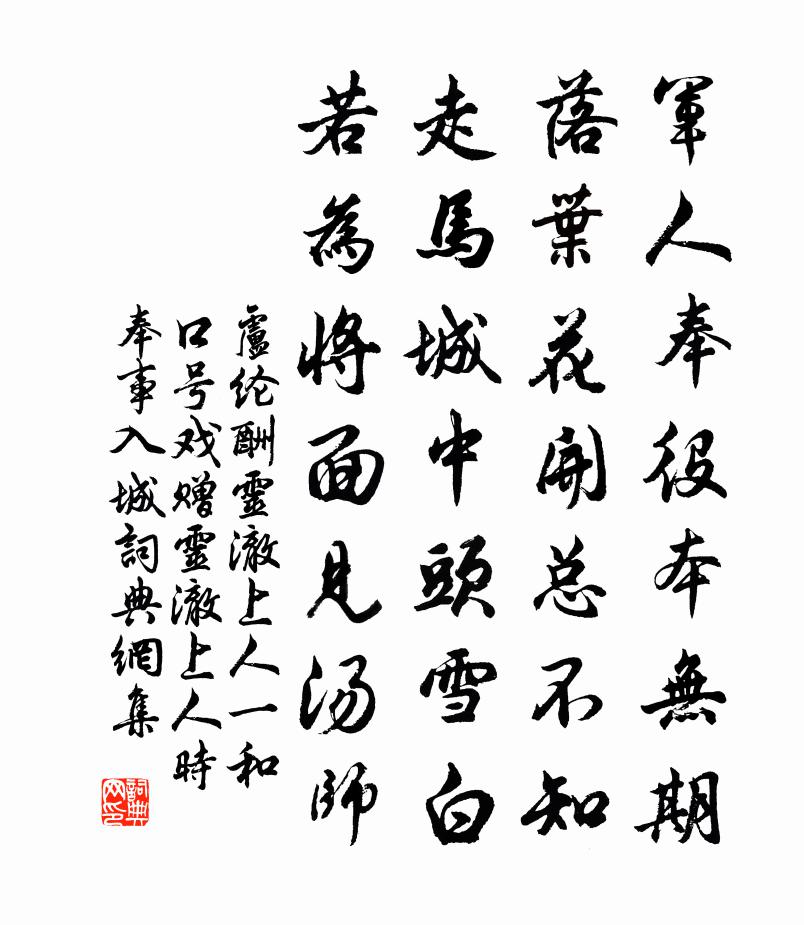 軍人奉役本無期
落葉花開总不知
走馬城中頭雪白
若為将面見汤師
盧纶酬靈澈上人一和
口号戏赠靈澈上人時
奉事入城詞典網集
詞典
网印